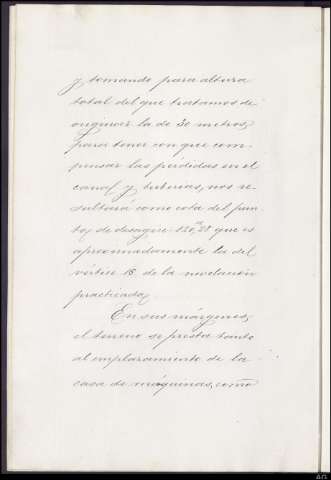 y tomando para altura
total del que tratamos de
originar la de 30 metros,
para tener con que com-
pensar las pérdidas en el
canal y tuberias, nos re-
sultará como cota del pun-
to de desague 120,m28 que es
aproximadamente la del
vértice 18 de la nivelación
practicada,
En sus márgenes,
el terreno se presta tanto
al emplazamiento de la
casa de máquinas, como